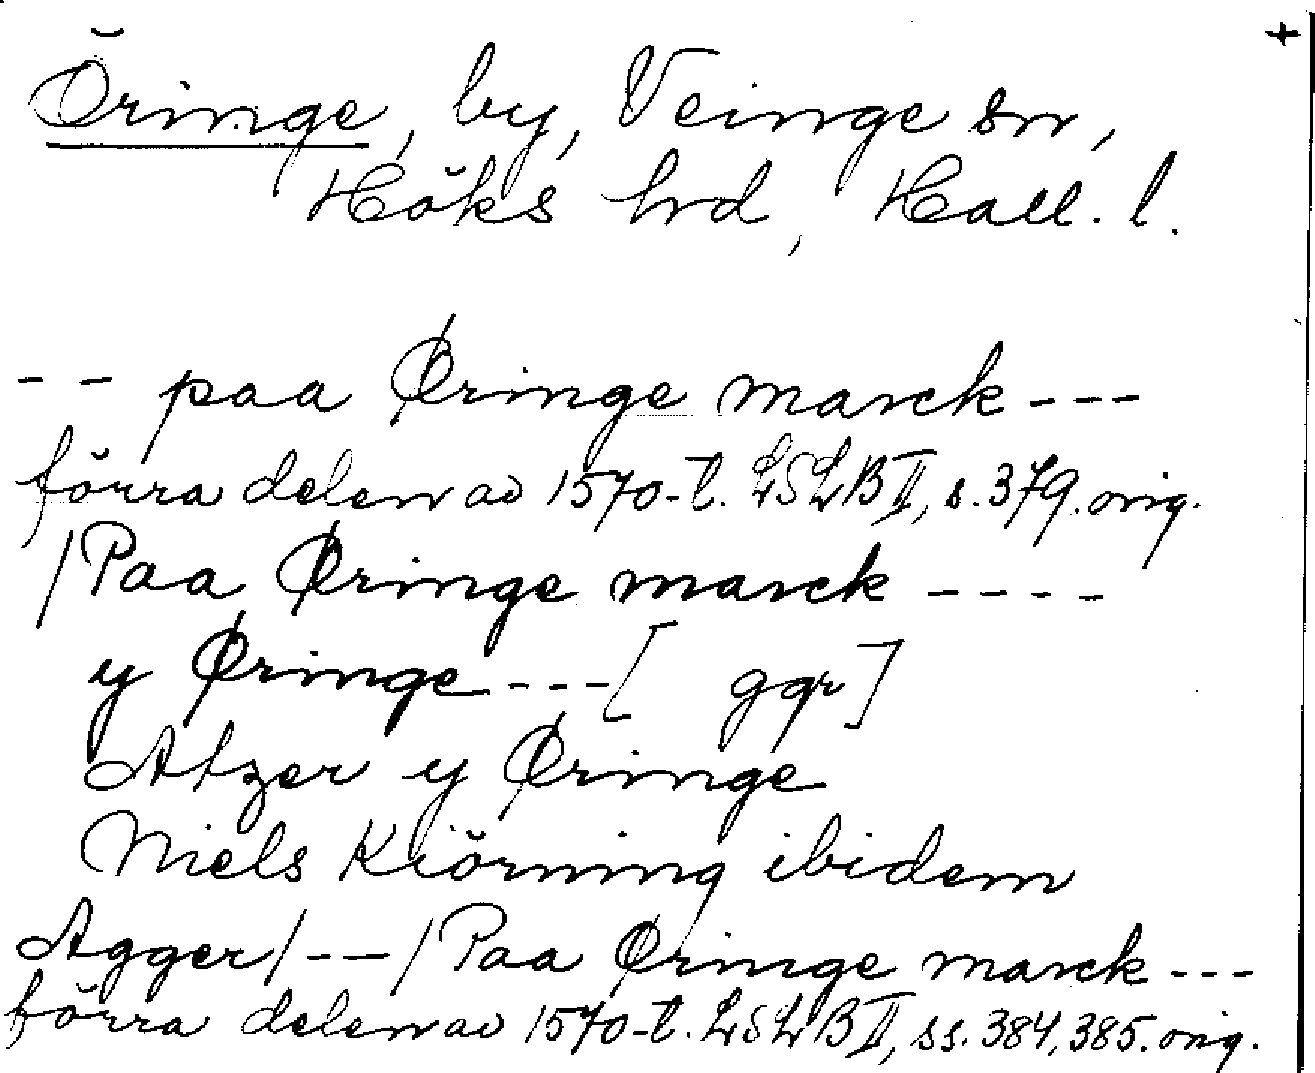 +
Öringe, by, Veinge sn,
Höks hrd, Hall. l.
-- paa Øringe marck ---
förra delen av 1570-t. LSLB II, s. 379. orig.
/Paa Øringe marck ----
y Øringe --- [ ggr]
Atzer y Øringe
Niels Kiörning ibidem
Agger/--/Paa Øringe marck ---
förra delen av 1570-t. LSLB II, ss. 384, 385. orig.